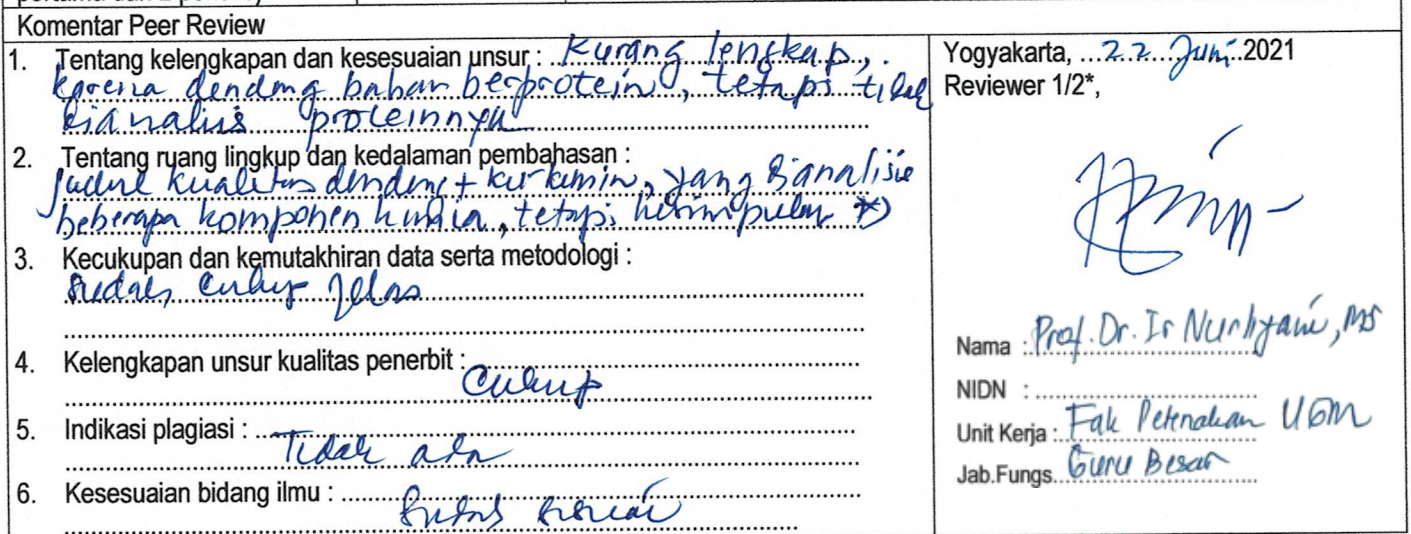 Komentar Peer Review
1. Tentang kelengkapan dan kesesuaian unsur : Kurang lengkap,
karena dendeng bahan berprotein, tetapi tidak
dianalisis proteinnya
2. Tentang ruang lingkup dan kedalaman pembahasan :
Judul kualitas dendeng + kurkumin, yang dianalisis
beberapa komponen kimia, tetapi kesimpulan *)
3. Kecukupan dan kemutakhiran data serta metodologi :
Sudah cukup jelas
4. Kelengkapan unsur kualitas penerbit :
Cukup
5. Indikasi plagiasi :
Tidak ada
6. Kesesuaian bidang ilmu :
Sudah sesuai
Yogyakarta, 22 Juni 2021
Reviewer 1/2*,
Nama : Prof. Dr. Ir Nurliyani, MS
NIDN :
Unit Kerja : Fak Peternakan UGM
Jab.Fungs. Guru Besar